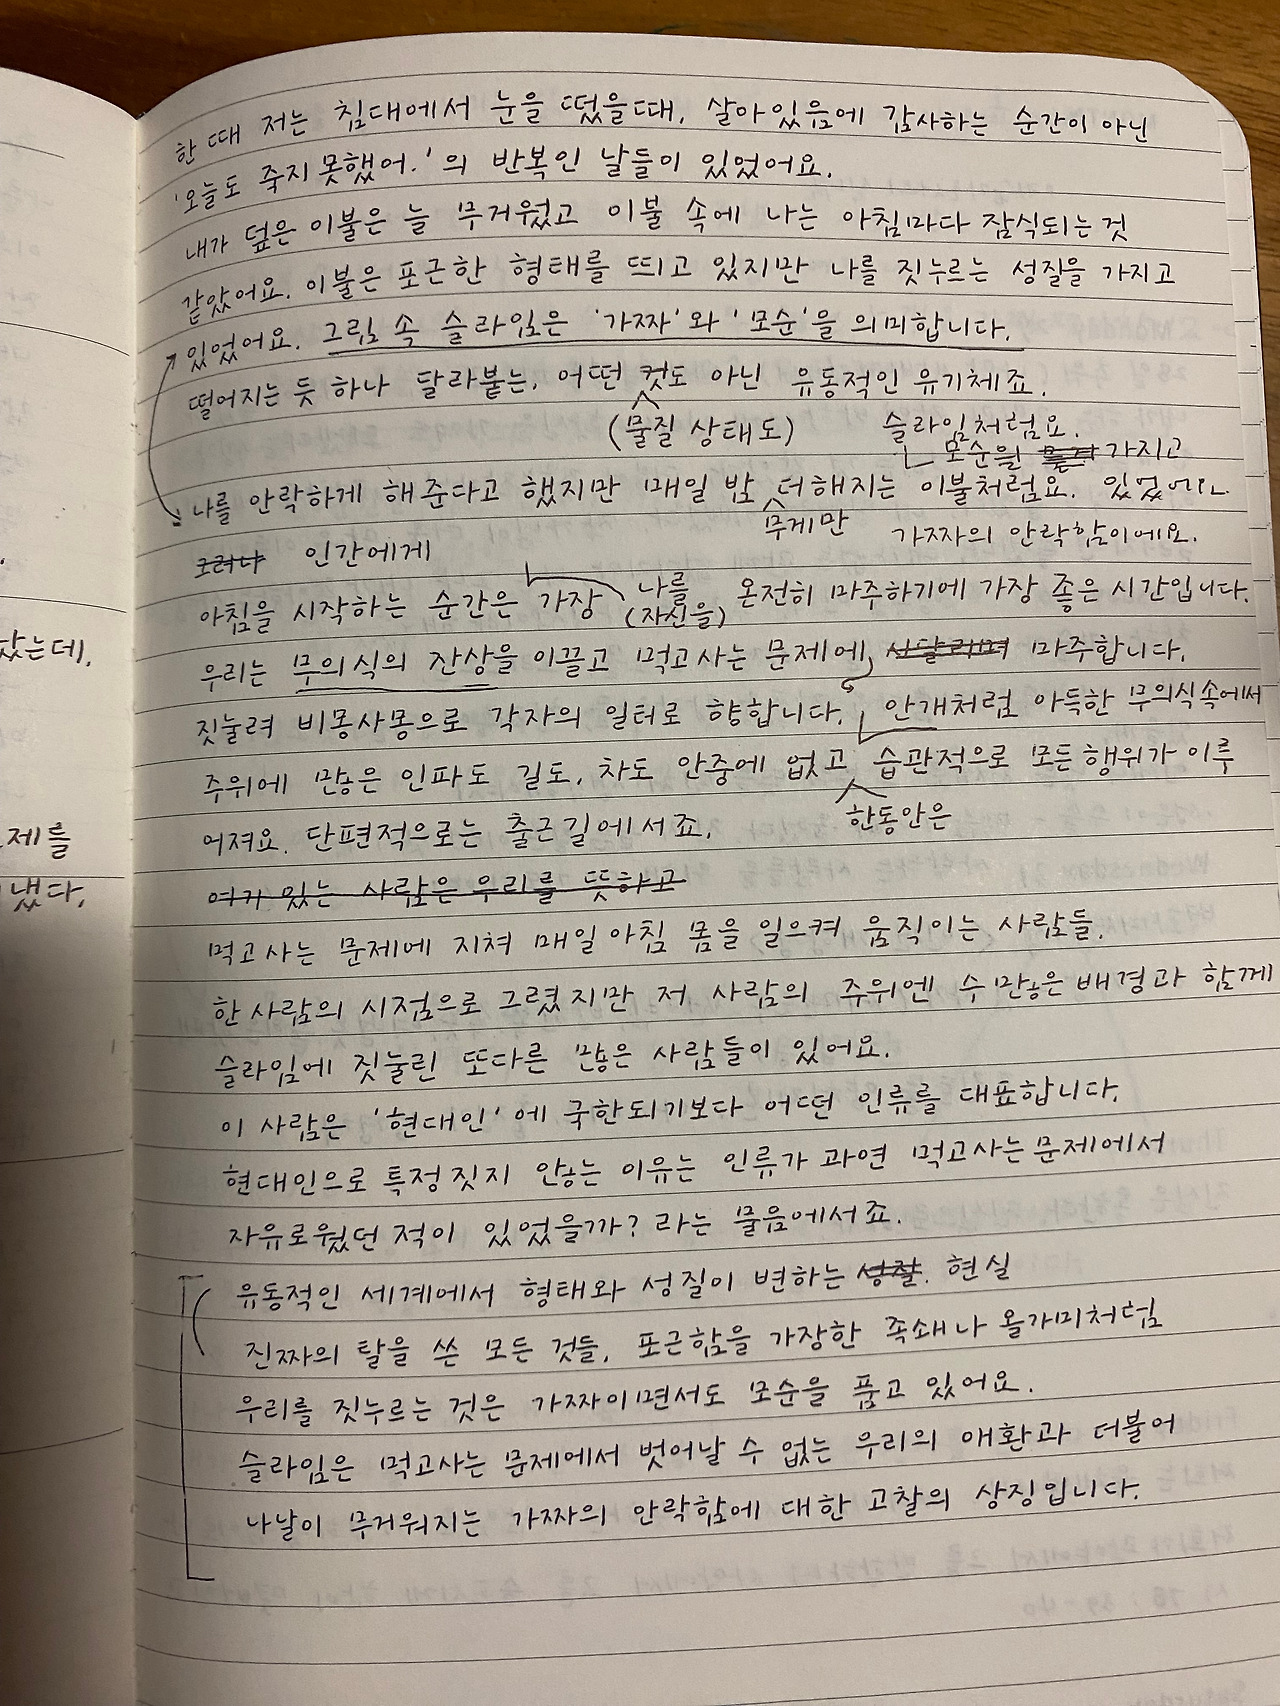 한 때 저는 침대에서 눈을 떴을때, 살아있음에 감사하는 순간이 아닌
'오늘도 죽지 못했어.'의 반복인 날들이 있었어요.
내가 덮은 이불은 늘 무거웠고 이불 속에 나는 아침마다 잠식되는 것
같았어요. 이불은 포근한 형태를 띄고 있지만 나를 짓누르는 성질을 가지고
있었어요. 그림 속 슬라임은 '가짜'와 '모순'을 의미합니다.
떨어지는 듯 하나 달라붙는, 어떤 것도 아닌 유동적인 유기체죠.
(물질 상태도) 슬라임처럼요.
모순을 가지고
나를 안락하게 해준다고 했지만 매일 밤 더해지는 이불처럼요. 있었어요.
무게만 가짜의 안락함이에요.
그러나 인간에게
아침을 시작하는 순간은 가장 나를 온전히 마주하기에 가장 좋은 시간입니다.
(자신을)
우리는 무의식의 잔상을 이끌고 먹고사는 문제에 시달리며 마주합니다.
짓눌려 비몽사몽으로 각자의 일터로 향합니다. 안개처럼 아득한 무의식속에서
주위에 많은 인파도 길도, 차도 안중에 없고 습관적으로 모든 행위가 이루
한동안은
어져요. 단편적으로는 출근길에서죠.
여기 있는 사람은 우리를 뜻하고
먹고사는 문제에 지쳐 매일 아침 몸을 일으켜 움직이는 사람들.
한 사람의 시점으로 그렸지만 저 사람의 주위엔 수많은 배경과 함께
슬라임에 짓눌린 또다른 많은 사람들이 있어요.
이 사람은 '현대인'에 국한되기보다 어떤 인류를 대표합니다.
현대인으로 특정짓지 않는 이유는 인류가 과연 먹고사는 문제에서
자유로웠던 적이 있었을까? 라는 물음에서죠.
유동적인 세계에서 형태와 성질이 변하는 성찰. 현실
진짜의 탈을 쓴 모든 것들, 포근함을 가장한 족쇄나 올가미처럼
우리를 짓누르는 것은 가짜이면서도 모순을 품고 있어요.
슬라임은 먹고사는 문제에서 벗어날 수 없는 우리의 애환과 더불어
나날이 무거워지는 가짜의 안락함에 대한 고찰의 상징입니다.
았는데,
제를
냈다,